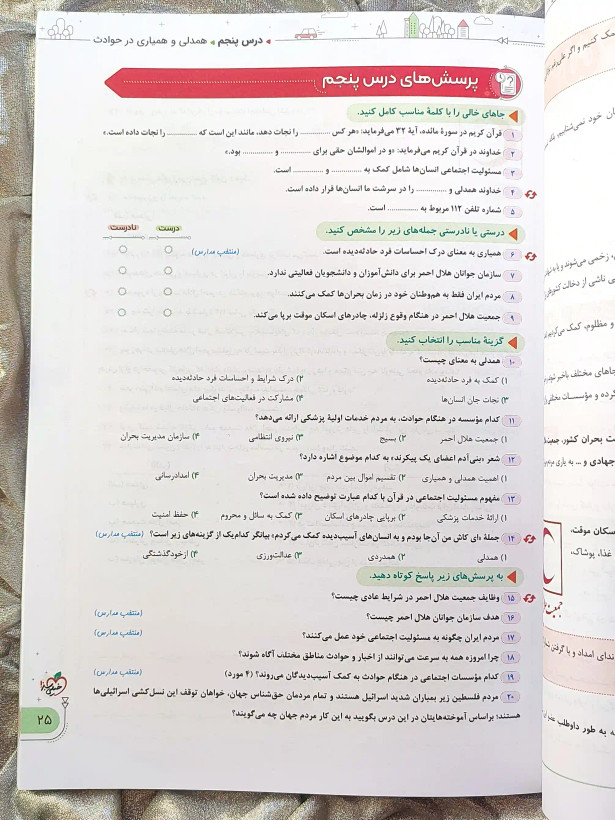 درس پنجم ◂ همدلی و همیاری در حوادث
پرسش‌های درس پنجم
جاهای خالی را با کلمهٔ مناسب کامل کنید.
۱ قرآن کریم در سورهٔ مائده، آیهٔ ۳۲ می‌فرماید: «هر کس ............ را نجات دهد، مانند این است که ............ را نجات داده است.»
۲ خداوند در قرآن کریم می‌فرماید: «و در اموالشان حقی برای ............ و ............ بود.»
۳ مسئولیت اجتماعی انسان‌ها شامل کمک به ............ و ............ است.
۴ خداوند همدلی و ............ را در سرشت ما انسان‌ها قرار داده است.
۵ شماره تلفن ۱۱۲ مربوط به ............ است.
درستی یا نادرستی جمله‌های زیر را مشخص کنید.
درست نادرست
۶ همیاری به معنای درک احساسات فرد حادثه‌دیده است. (منتخب مدارس)
۷ سازمان جوانان هلال احمر برای دانش‌آموزان و دانشجویان فعالیتی ندارد.
۸ مردم ایران فقط به هم‌وطنان خود در زمان بحران‌ها کمک می‌کنند.
۹ جمعیت هلال احمر در هنگام وقوع زلزله، چادرهای اسکان موقت برپا می‌کند.
گزینهٔ مناسب را انتخاب کنید.
۱۰ همدلی به معنای چیست؟
۱) کمک به فرد حادثه‌دیده ۲) درک شرایط و احساسات فرد حادثه‌دیده
۳) نجات جان انسان‌ها ۴) مشارکت در فعالیت‌های اجتماعی
۱۱ کدام مؤسسه در هنگام حوادث، به مردم خدمات اولیهٔ پزشکی ارائه می‌دهد؟
۱) جمعیت هلال احمر ۲) بسیج ۳) نیروی انتظامی ۴) سازمان مدیریت بحران
۱۲ شعر «بنی‌آدم اعضای یک پیکرند» به کدام موضوع اشاره دارد؟
۱) اهمیت همدلی و همیاری ۲) تقسیم اموال بین مردم ۳) مدیریت بحران ۴) امدادرسانی
۱۳ مفهوم مسئولیت اجتماعی در قرآن با کدام عبارت توضیح داده شده است؟
۱) ارائهٔ خدمات پزشکی ۲) برپایی چادرهای اسکان ۳) کمک به سائل و محروم ۴) حفظ امنیت
۱۴ جملهٔ «ای کاش من آن‌جا بودم و به انسان‌های آسیب‌دیده کمک می‌کردم» بیانگر کدام‌یک از گزینه‌های زیر است؟ (منتخب مدارس)
۱) همدلی ۲) همدردی ۳) عدالت‌ورزی ۴) ازخودگذشتگی
به پرسش‌های زیر پاسخ کوتاه دهید.
۱۵ وظایف جمعیت هلال احمر در شرایط عادی چیست؟
۱۶ هدف سازمان جوانان هلال احمر چیست؟ (منتخب مدارس)
۱۷ مردم ایران چگونه به مسئولیت اجتماعی خود عمل می‌کنند؟ (منتخب مدارس)
۱۸ چرا امروزه همه به سرعت می‌توانند از اخبار و حوادث مناطق مختلف آگاه شوند؟
۱۹ کدام مؤسسات اجتماعی در هنگام حوادث به کمک آسیب‌دیدگان می‌روند؟ (۴ مورد) (منتخب مدارس)
۲۰ مردم فلسطین زیر بمباران شدید اسرائیل هستند و تمام مردمان حق‌شناس جهان، خواهان توقف این نسل‌کشی اسرائیلی‌ها
هستند؛ براساس آموخته‌هایتان در این درس بگویید به این کار مردم جهان چه می‌گویند؟
خیلی سبز
۲۵